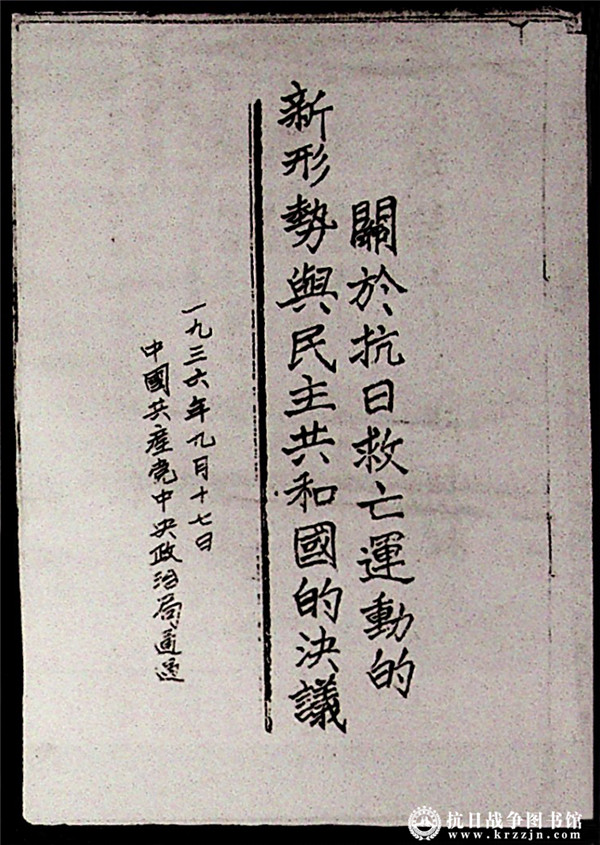 關於抗日救亡運動的
新形勢與民主共和國的決議
一九三六年九月十七日
中國共產党中央政治局通過
抗日战争图书馆
www.krzzjn.com